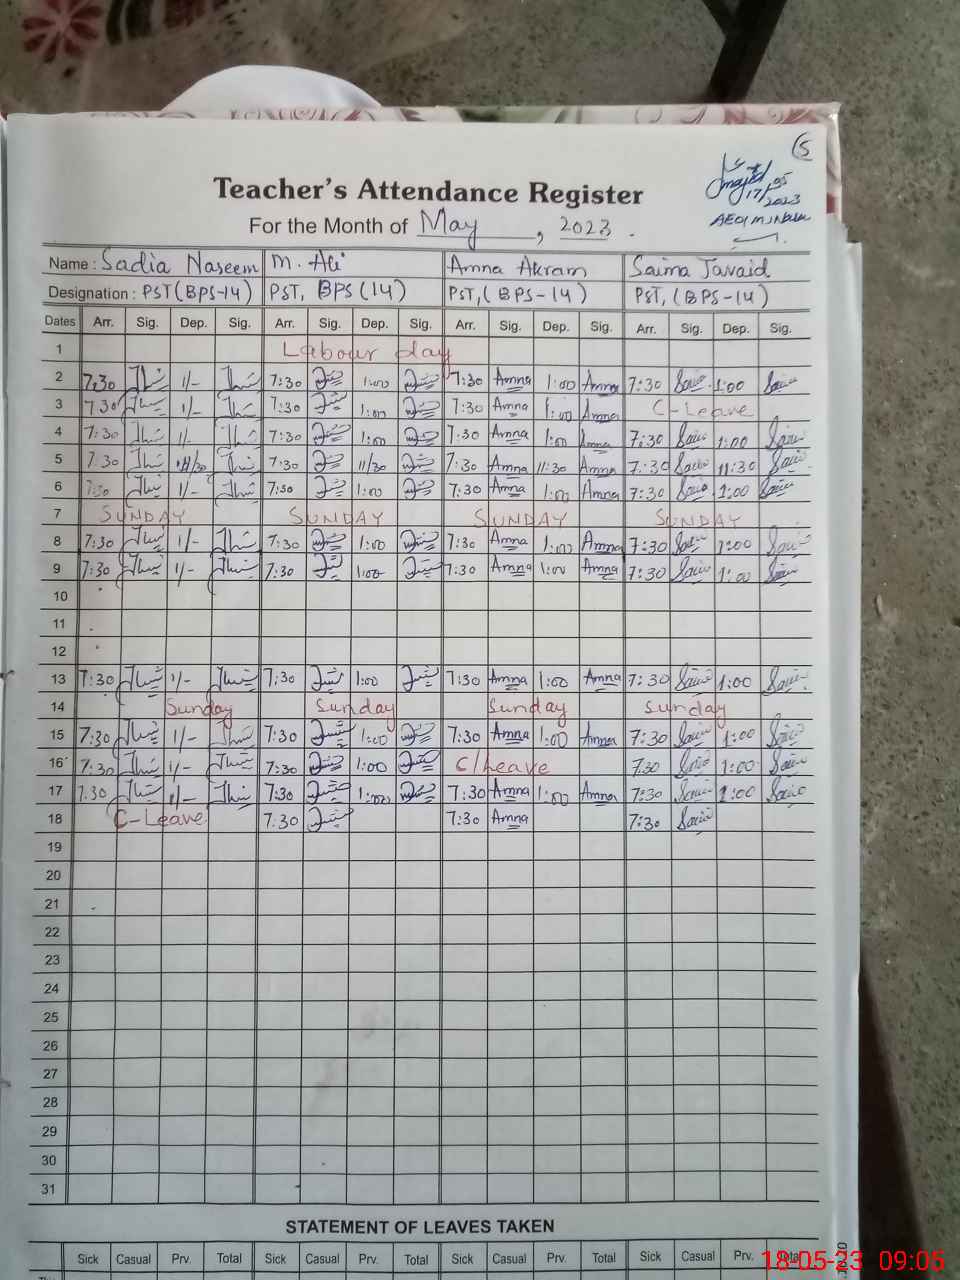 5
17/05
2023
Teacher's Attendance Register
For the Month of May, 2023.
Name : Sadia Naseem M. Ali Amna Akram Saima Javaid
Designation : PST (BPS-14) PST, BPS (14) PST, (BPS-14) PST, (BPS-14)
Dates Arr. Sig. Dep. Sig. Arr. Sig. Dep. Sig. Arr. Sig. Dep. Sig. Arr. Sig. Dep. Sig.
1 Labour day
2 7:30 1/- 7:30 1:00 7:30 Amna 1:00 Amna 7:30 1:00
3 7:30 1/- 7:30 1:00 7:30 Amna 1:00 Amna C-Leave
4 7:30 1/- 7:30 1:00 7:30 Amna 1:00 Amna 7:30 1:00
5 7:30 7:30 11/30 7:30 Amna 11:30 Amna 7:30 11:30
6 7:30 1/- 7:30 1:00 7:30 Amna 1:00 Amna 7:30 1:00
7 SUNDAY SUNDAY SUNDAY SUNDAY
8 7:30 1/- 7:30 1:00 7:30 Amna 1:00 Amna 7:30 1:00
9 7:30 1/- 7:30 1:00 7:30 Amna 1:00 Amna 7:30 1:00
10
11
12
13 7:30 1/- 7:30 1:00 7:30 Amna 1:00 Amna 7:30 1:00
14 Sunday Sunday Sunday Sunday
15 7:30 1/- 7:30 1:00 7:30 Amna 1:00 Amna 7:30 1:00
16 7:30 1/- 7:30 1:00 C/Leave 7:30 1:00
17 7:30 1/- 7:30 1:00 7:30 Amna 1:00 Amna 7:30 1:00
18 C-Leave 7:30 7:30 Amna 7:30
19
20
21
22
23
24
25
26
27
28
29
30
31
STATEMENT OF LEAVES TAKEN
Sick Casual Prv. Total Sick Casual Prv. Total Sick Casual Prv. Total Sick Casual Prv. Total
18-05-23 09:05